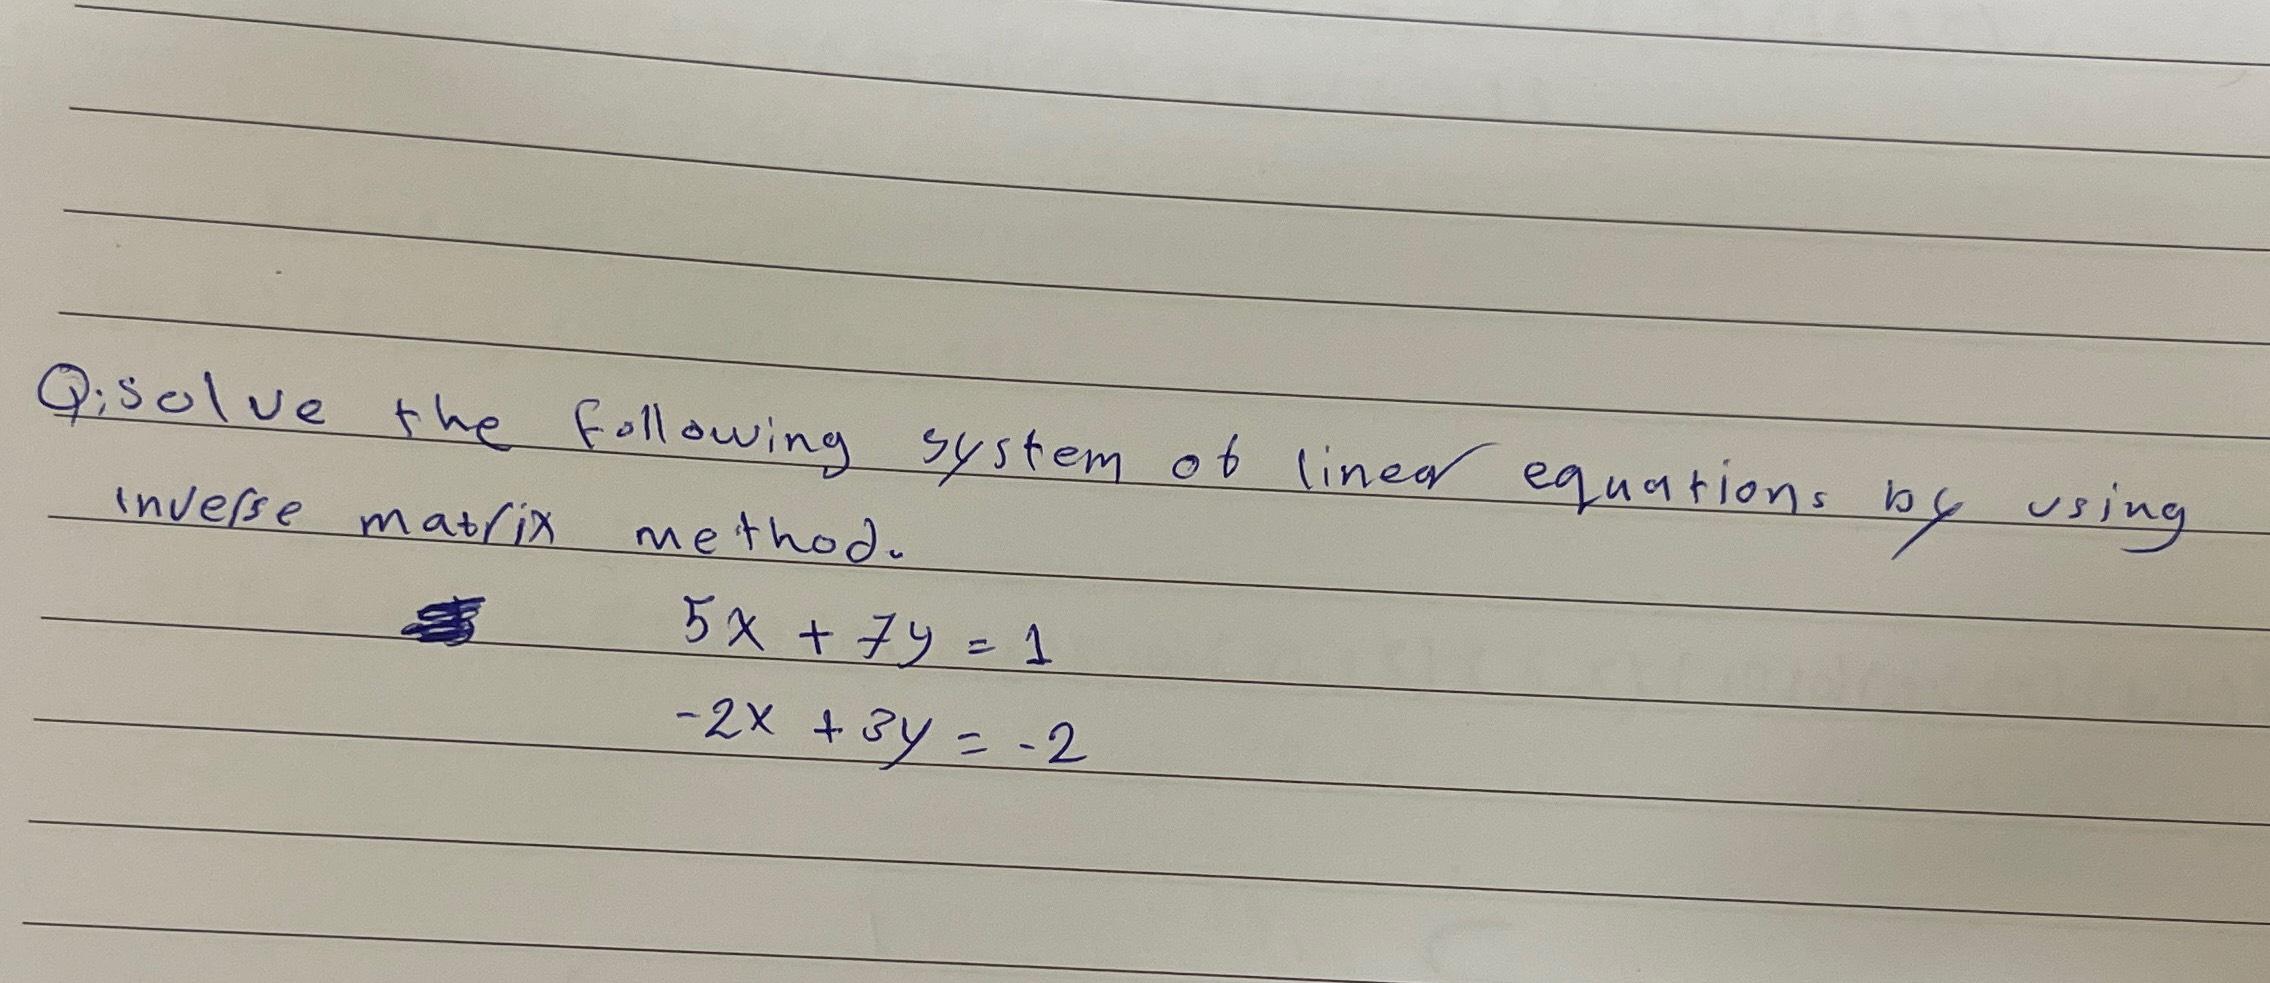 Q: solve the following system of linear equations by using
inverse matrix method.
5x + 7y = 1
-2x + 3y = -2